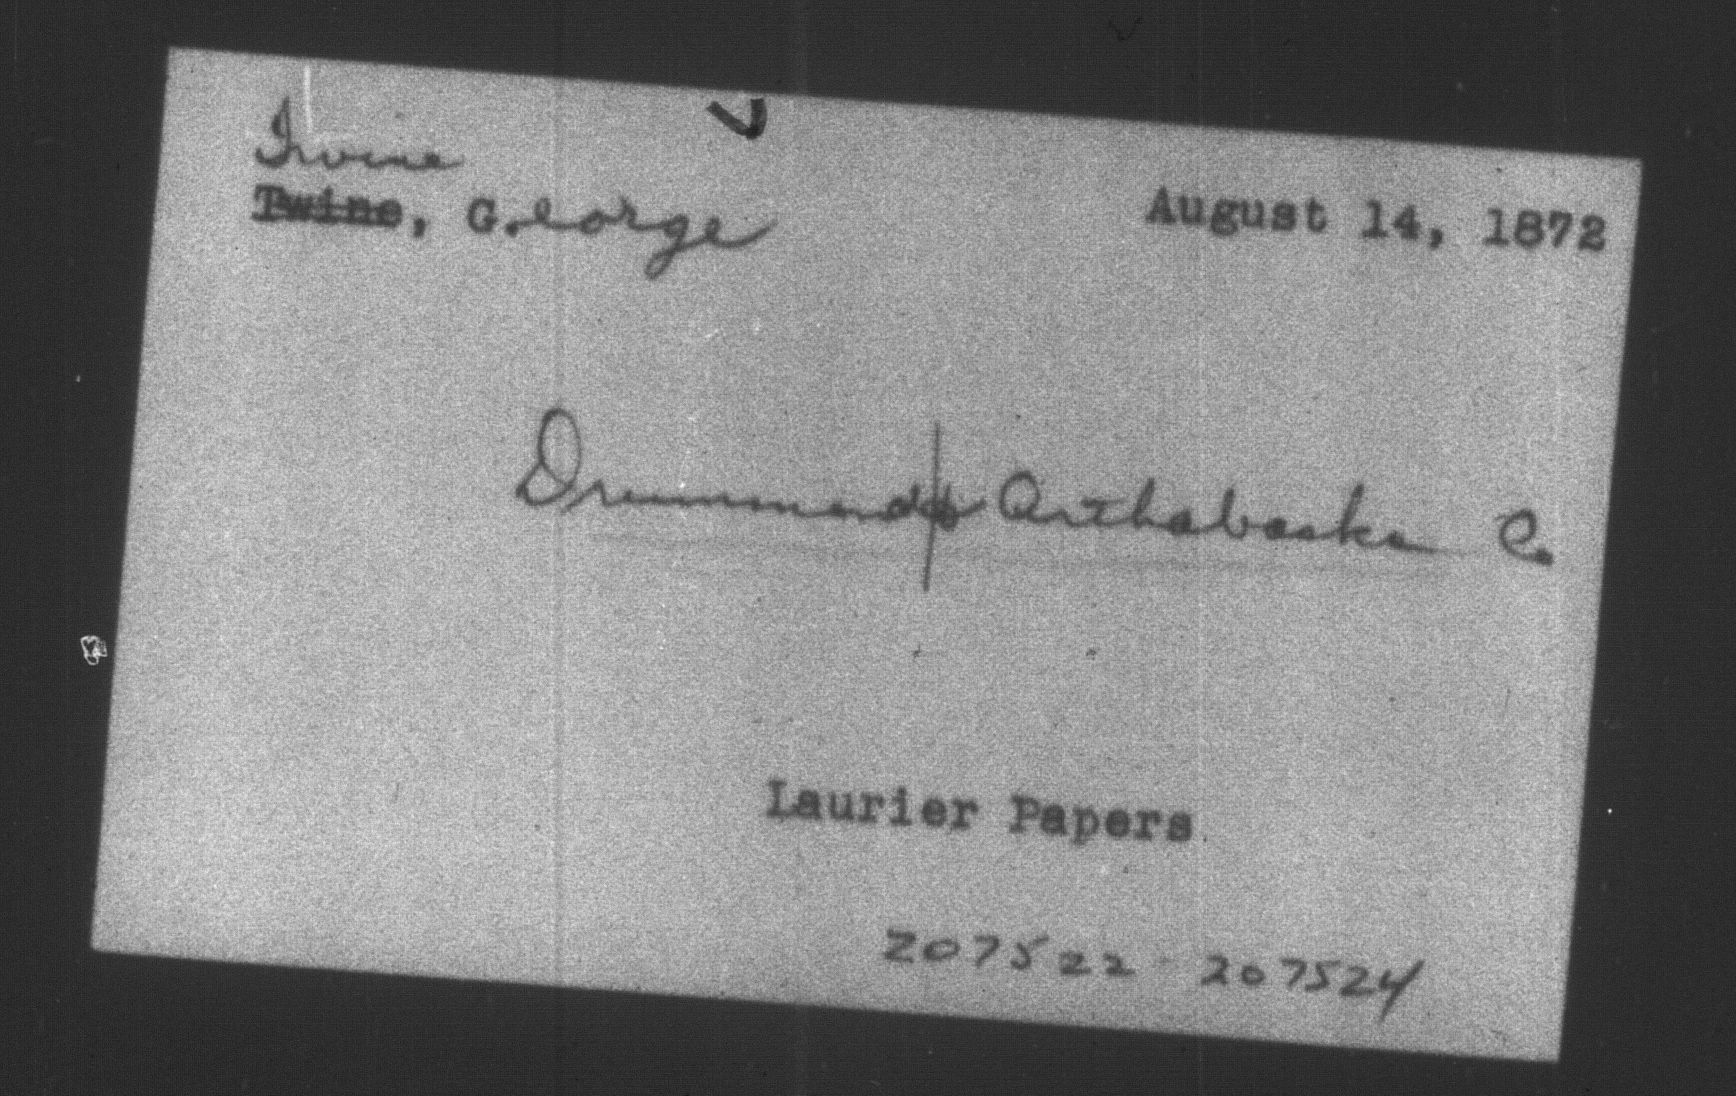 Irvine
Twine, G.eorge
August 14, 1872
Drummond & Arthabaska Co.
Laurier Papers
207522 - 207524